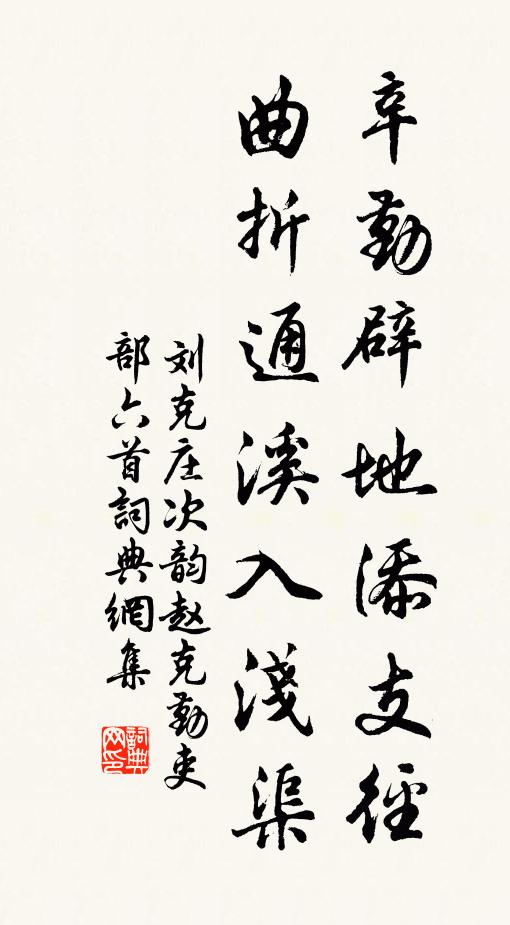 辛勤辟地添支徑
曲折通溪入淺渠
刘克庄次韵赵克勤吏
部六首詞典網集
詞典
网印